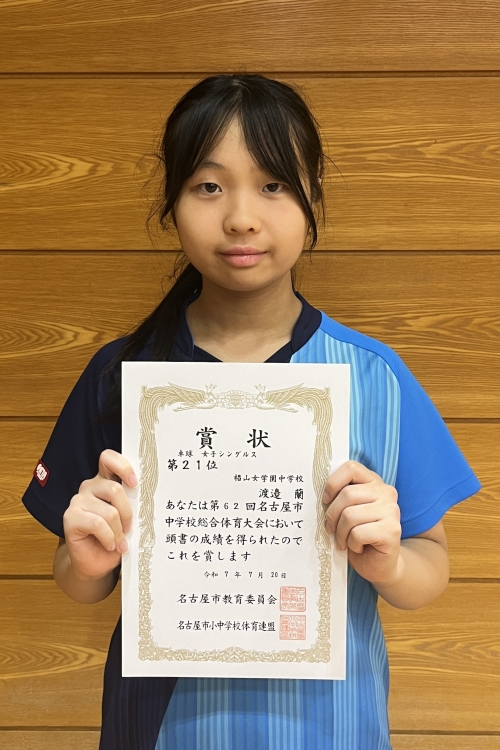 賞状
卓球 女子シングルス
第21位
椙山女学園中学校
渡邉 蘭
あなたは第62回名古屋市
中学校総合体育大会において
頭書の成績を得られたので
これを賞します
令和7年7月20日
名古屋市教育委員会
名古屋市小中学校体育連盟